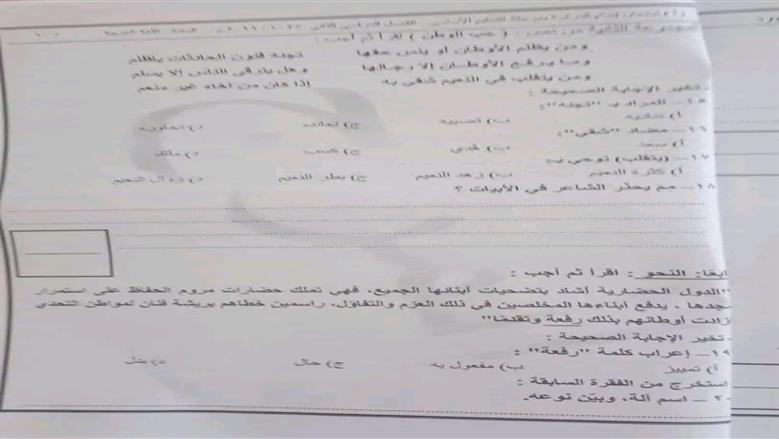 المجموعة الثانية من نص : ( حب الوطن ) اقرأ ثم أجب :
ومن يظلم الأوطان أو ينس حقها تجئه فنون الحادثات بأظلم
وما يرفع الأوطان إلا رجالها وهل يترقى الناس إلا بسلم
ومن يتقلب في النعيم شقى به إذا كان من آخاه غير منعم
تخير الإجابة الصحيحة :
١٥- المراد بـ "تجئه" :
أ) تناديه ب) تصيبه ج) تعانده د) تحاوره
١٦- مضاد "شقى" :
أ) سعد ب) قوي ج) كسب د) ملك
١٧- (يتقلب) توحي بـ
أ) كثرة النعيم ب) زهد النعيم ج) بطر النعيم د) زوال النعيم
١٨- مم يحذر الشاعر في الأبيات ؟
رابعًا: النحو : اقرأ ثم أجب :
"الدول الحضارية أشاد بتضحيات أبنائها الجميع، فهي تملك حضارات مروم الحفاظ على استمرار
مجدها ، يدفع أبناءها المخلصين في ذلك العزم والتفاؤل، راسمين خطاهم بريشة فنان لمواطن التحدي
زادت أوطانهم بذلك رفعة وتقدمًا"
تخير الإجابة الصحيحة :
١٩- إعراب كلمة "رفعة" :
أ) تمييز ب) مفعول به ج) حال د) بدل
استخرج من الفقرة السابقة :
٢٠- اسم آلة، وبيّن نوعه.